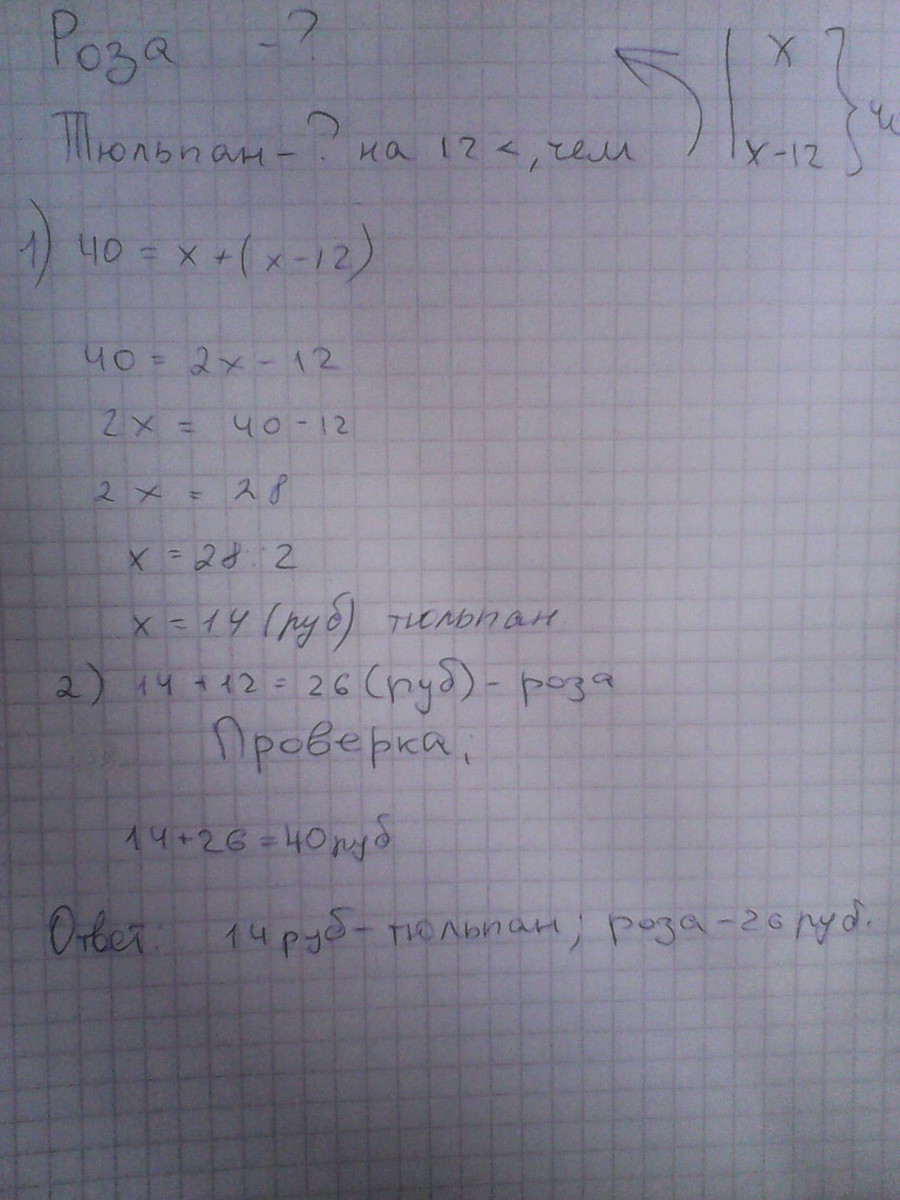 Роза -? x
Тюльпан-? на 12 <, чем x-12
1) 40 = x + (x-12)
40 = 2x - 12
2x = 40-12
2x = 28
x = 28:2
x = 14 (руб) тюльпан
2) 14+12 = 26 (руб) - роза
Проверка;
14+26=40руб
Ответ: 14 руб- тюльпан; роза-26 руб.